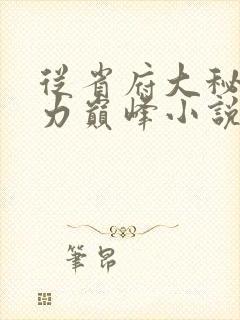 從省府大秘
力巔峰小說
筆昂